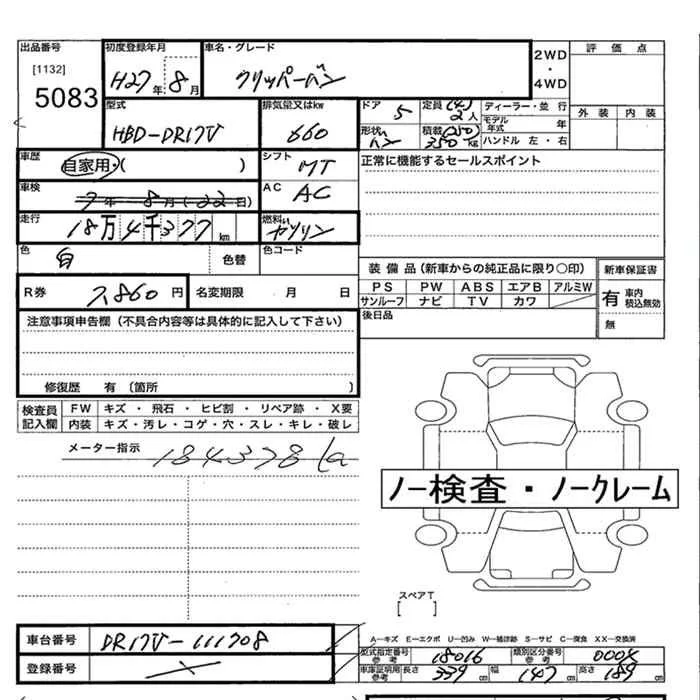 出品番号 初度登録年月 車名・グレード 2WD・4WD 評価点
[1132] 5083 H27年 8月 クリッパーバン 外装 内装
型式 排気量又はkw ドア 5 定員 (4) 2人 ディーラー・並行
HBD-DR17V 660 形状 バン 積載 (250) 350kg モデル年式 年 ハンドル 左・右
車歴 自家用・( ) シフト MT 正常に機能するセールスポイント
車検 9年 8月 (22日) AC AC
走行 18万4千377km 燃料 ガソリン
色 白 色替 色コード
装備品(新車からの純正品に限り○印) 新車保証書
R券 円 名変期限 月 日 PS PW ABS エアB アルミW 有 車内積込無効
サンルーフ ナビ TV カワ 無
注意事項申告欄(不具合内容等は具体的に記入して下さい) 後日品
修復歴 有(箇所 )
検査員記入欄 FW キズ・飛石・ヒビ割・リペア跡・X要
内装 キズ・汚レ・コゲ・穴・スレ・キレ・破レ
メーター指示 184378
ノー検査・ノークレーム
スペアT
[ ]
A―キズ E―エクボ U―凹み W―補修跡 S―サビ C―腐食 XX―交換済
車台番号 DR17V-111708 型式指定番号 参考 18016 類別区分番号 参考 0004
登録番号 車庫証明用 参考 長さ 339cm 幅 147cm 高さ 189cm